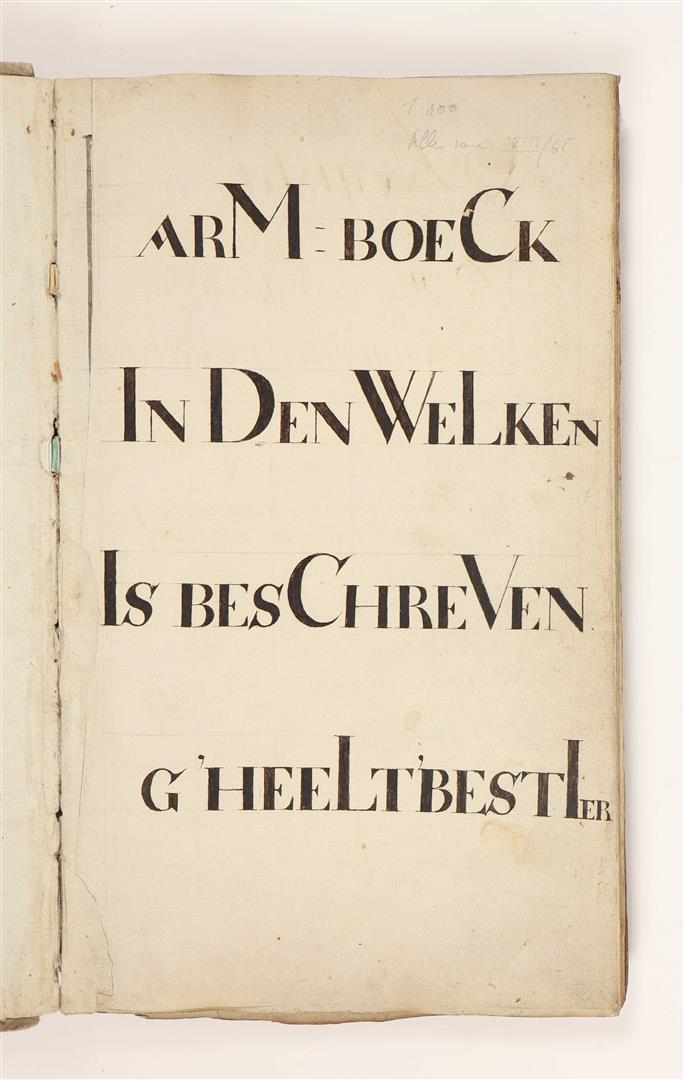 1 000
Alles van VIII/61
ARM = BOECK
IN DEN WELKEN
IS BESCHREVEN
G'HEEL T'BESTIER